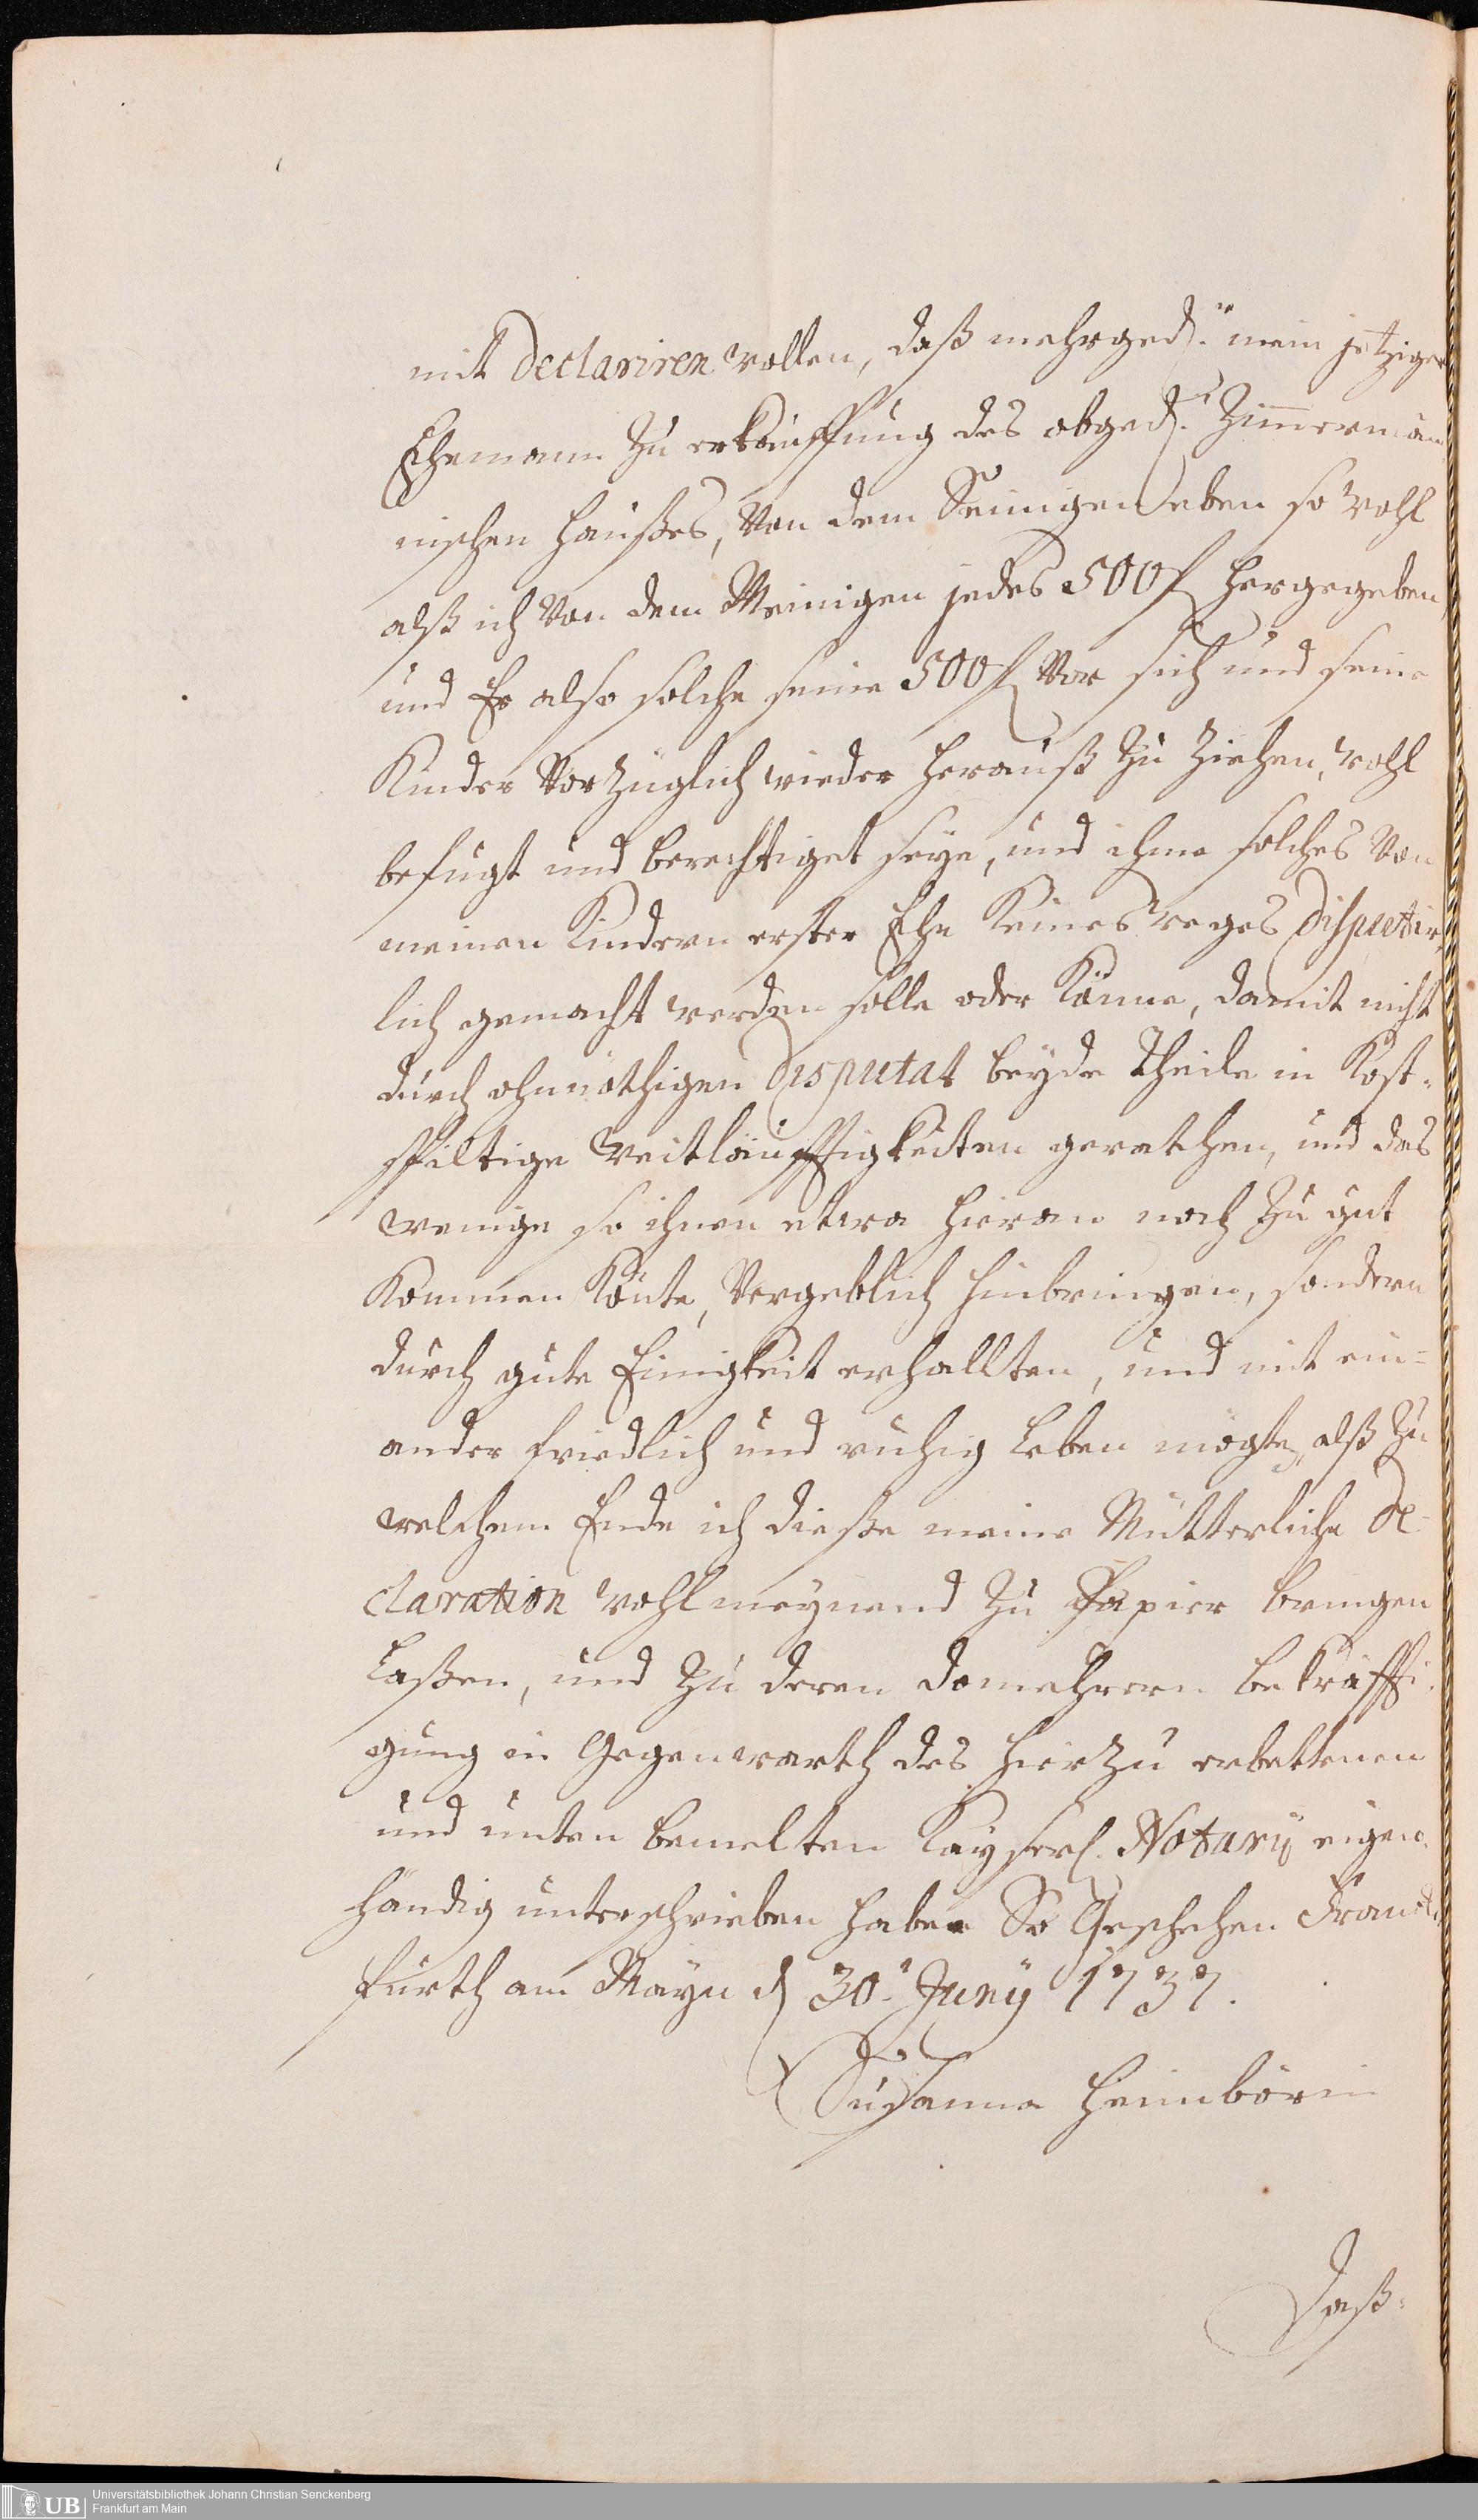 mit declariren wollen, daß mehrged.r mein jetziger
Ehemann zu erkauffung des obged. Zimmermän
nischen Haußes, Von dem Seinigen eben so wohl
alß ich Von dem Meinigen jedes 500 f hergegeben,
und Er also solche seine 500 f Vor sich und seine
Kinder Vorzüglich wieder herauß zu ziehen, wohl
befugt und berechtiget seye, und ihme solches Von
meinen Kindern erster Ehe Keines weges disputir-
lich gemacht werden solle oder Könne, damit nicht
durch ohnnöthigen disputat beyde Theile in Kost-
spiltige Weitläuffigkeiten gerathen, und das
wenige so ihnen etwa hieran noch zu gut
Kommen Könte, Vergeblich hinbringen, sondern
durch gute Einigkeit erhallten, und mit ein=
ander friedlich und ruhig Leben mögte, alß zu
welchem Ende ich dieße meine Mütterliche De-
claration wohlmeynend zu Papier bringen
Laßen, und zu deren domehrern bekräffti-
gung in Gegenwarth des hierzu erbettenen
und unten bemelten Kayserl. Notarÿ eigen-
händig unterschrieben habe. So Geschehen Franck-
furth am Mayn d 30. Junÿ 1737.
Susanna Heimbörin
Daß=
Universitätsbibliothek Johann Christian Senckenberg
Frankfurt am Main
UB